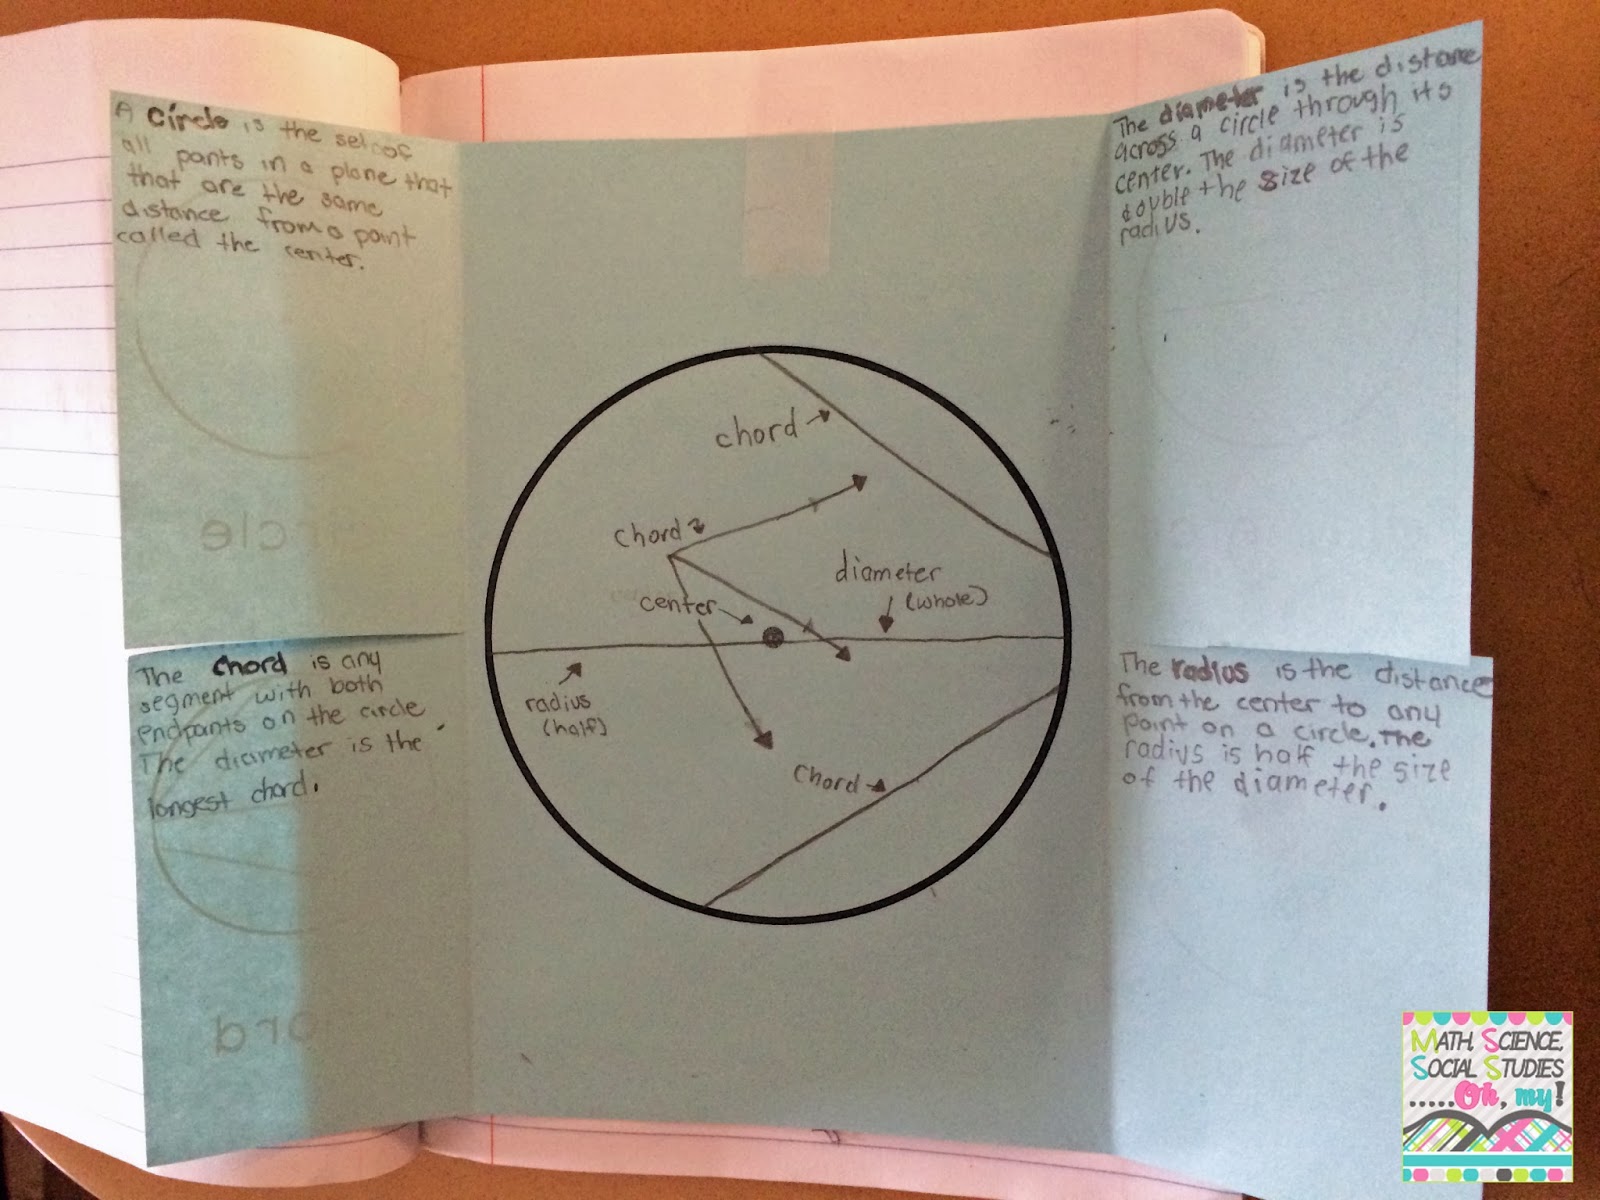 A circle is the set of
all points in a plane that
that are the same
distance from a point
called the center.
The chord is any
segment with both
endpoints on the circle.
The diameter is the
longest chord.
chord
chord
center
diameter
(whole)
radius
(half)
chord
The diameter is the distance
across a circle through its
center. The diameter is
double the size of the
radius.
The radius is the distance
from the center to any
point on a circle. The
radius is half the size
of the diameter.
MATH, SCIENCE,
SOCIAL STUDIES
.....Oh, my!